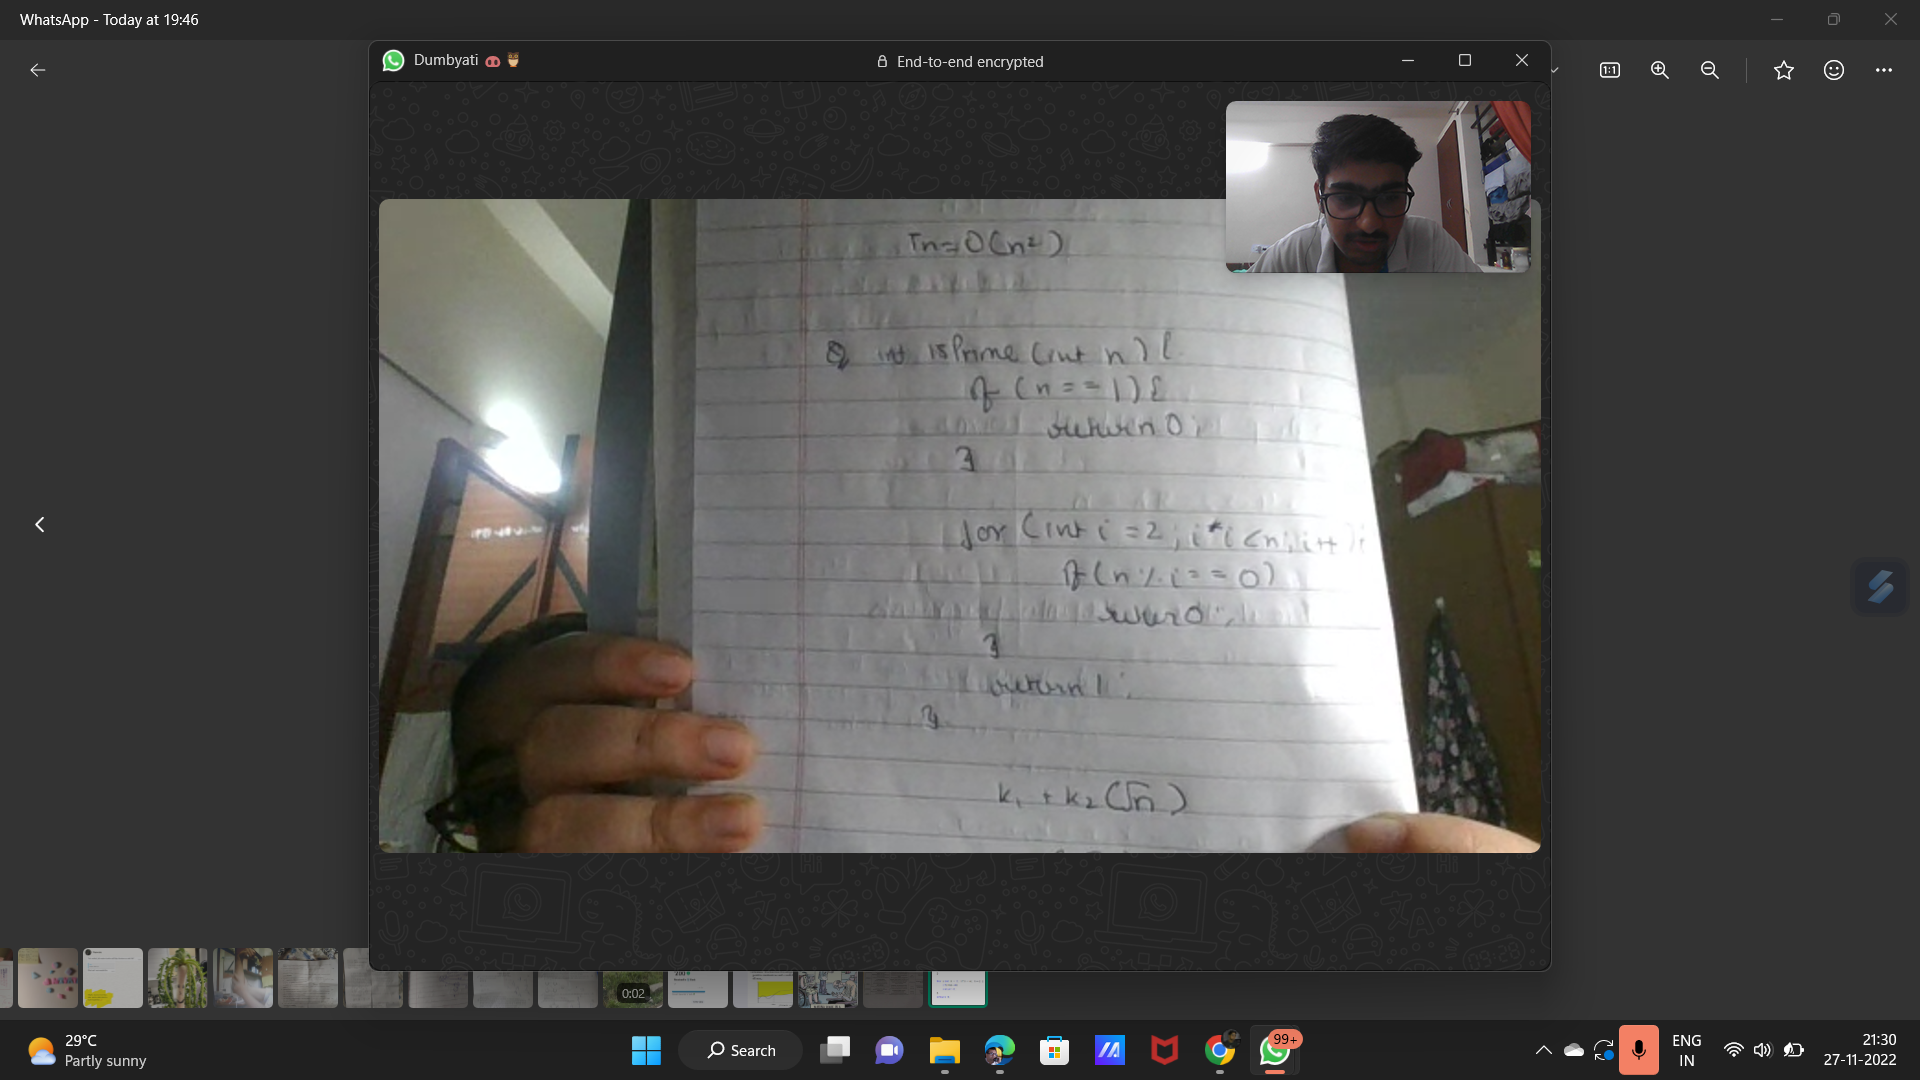 WhatsApp - Today at 19:46
Dumbyati
End-to-end encrypted
1:1
Tn=O(n²)
Q int isPrime (int n) {
if (n==1) {
return 0;
}
for (int i=2; i*i<n; i++) {
if (n%i==0)
return 0;
}
return 1;
}
k₁ + k₂(√n)
0:02
29°C
Partly sunny
Search
99+
ENG
IN
21:30
27-11-2022